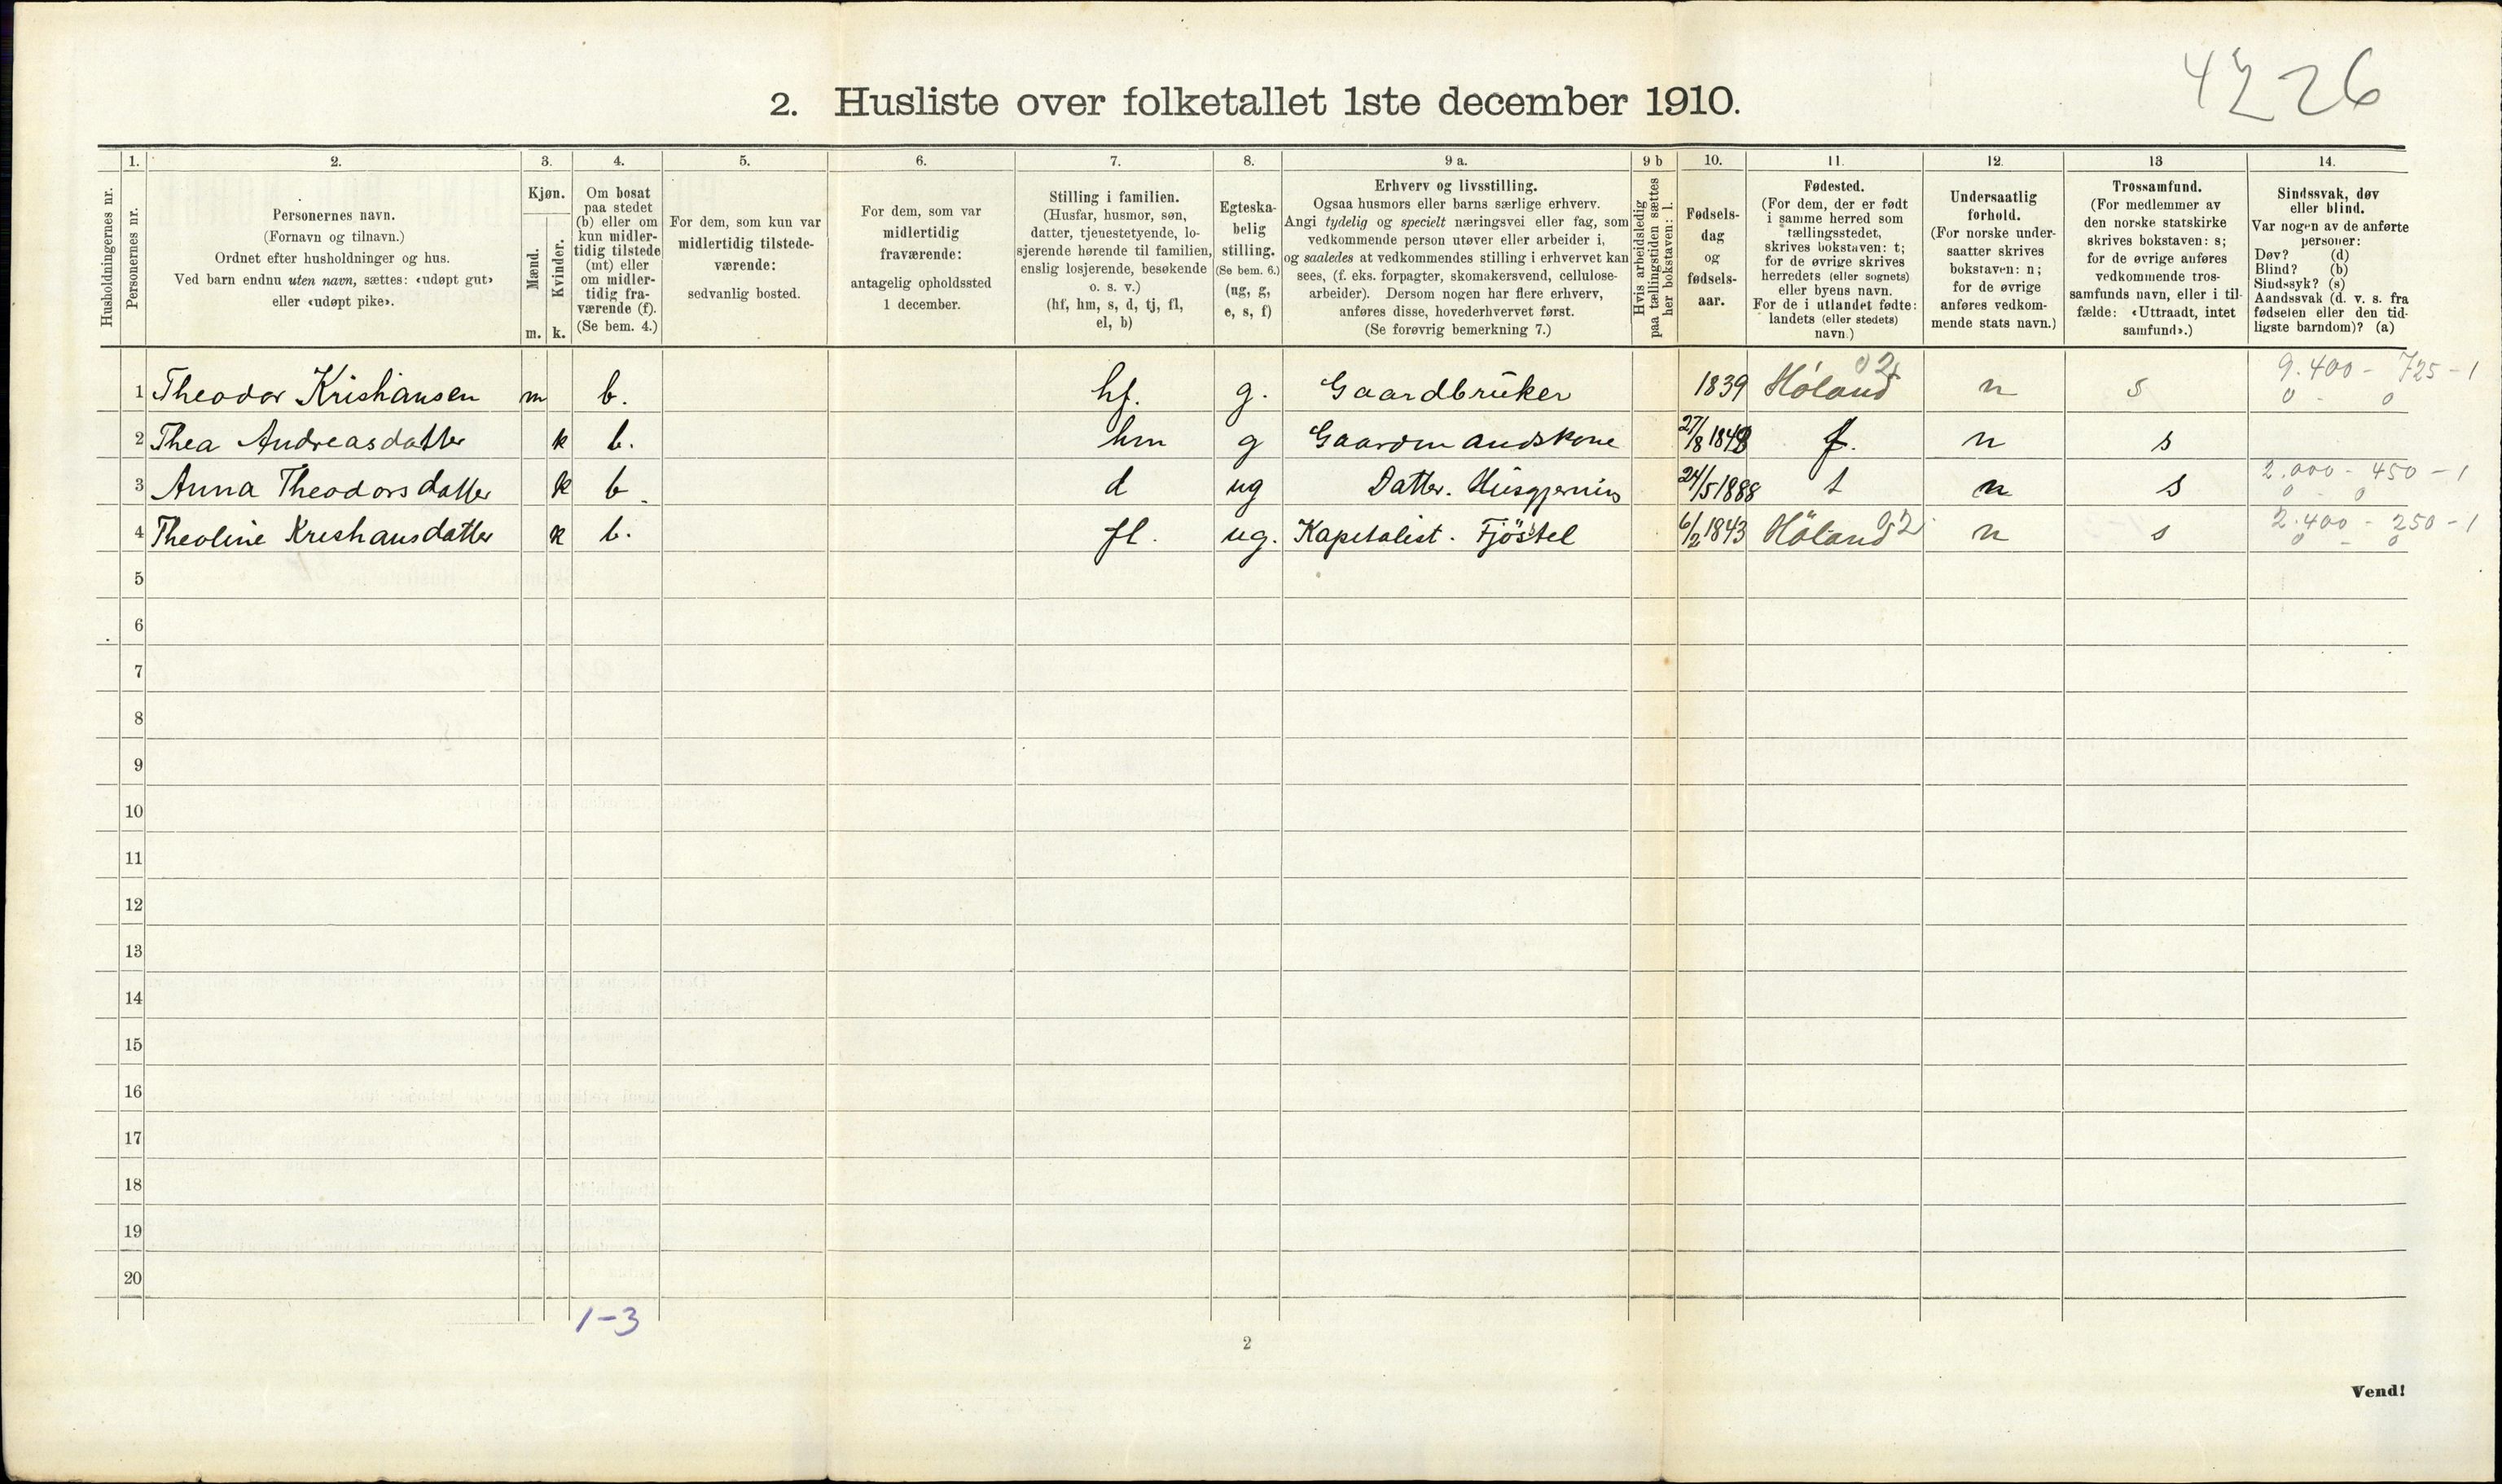 42 26
2. Husliste over folketallet 1ste december 1910.
1. 2. 3. 4. 5. 6. 7. 8. 9 a. 9 b 10. 11. 12. 13 14.
Husholdningernes nr.
Personernes nr.
Personernes navn.
(Fornavn og tilnavn.)
Ordnet efter husholdninger og hus.
Ved barn endnu uten navn, sættes: «udøpt gut»
eller «udøpt pike».
Kjøn.
Mænd.
Kvinder.
m. k.
Om bosat
paa stedet
(b) eller om
kun midler-
tidig tilstede
(mt) eller
om midler-
tidig fra-
værende (f).
(Se bem. 4.)
For dem, som kun var
midlertidig tilstede-
værende:
sedvanlig bosted.
For dem, som var
midlertidig
fraværende:
antagelig opholdssted
1 december.
Stilling i familien.
(Husfar, husmor, søn,
datter, tjenestetyende, lo-
sjerende hørende til familien,
enslig losjerende, besøkende
o. s. v.)
(hf, hm, s, d, tj, fl,
el, b)
Egteska-
belig
stilling.
(Se bem. 6.)
(ug, g,
e, s, f)
Erhverv og livsstilling.
Ogsaa husmors eller barns særlige erhverv.
Angi tydelig og specielt næringsvei eller fag, som
vedkommende person utøver eller arbeider i,
og saaledes at vedkommendes stilling i erhvervet kan
sees, (f. eks. forpagter, skomakersvend, cellulose-
arbeider). Dersom nogen har flere erhverv,
anføres disse, hovederhvervet først.
(Se forøvrig bemerkning 7.)
Hvis arbeidsledig
paa tællingstiden sættes
her bokstaven: l.
Fødsels-
dag
og
fødsels-
aar.
Fødested.
(For dem, der er født
i samme herred som
tællingsstedet,
skrives bokstaven: t;
for de øvrige skrives
herredets (eller sognets)
eller byens navn.
For de i utlandet fødte:
landets (eller stedets)
navn.)
Undersaatlig
forhold.
(For norske under-
saatter skrives
bokstaven: n;
for de øvrige
anføres vedkom-
mende stats navn.)
Trossamfund.
(For medlemmer av
den norske statskirke
skrives bokstaven: s;
for de øvrige anføres
vedkommende tros-
samfunds navn, eller i til-
fælde: «Uttraadt, intet
samfund».)
Sindssvak, døv
eller blind.
Var nogen av de anførte
personer:
Døv? (d)
Blind? (b)
Sindssyk? (s)
Aandssvak (d. v. s. fra
fødselen eller den tid-
ligste barndom)? (a)
02 9.400 - 725 - 1
1 Theodor Kristiansen m b. hf. g. Gaardbruker 1839 Høland n s 0 - 0
2 Thea Andreasdatter k b. hm g Gaardmandskone 27/8 1848 t. n s
2.000 - 450 - 1
3 Anna Theodorsdatter k b d ug Datter. Husgjerning 24/5 1888 t n s 0 - 0
2.400 - 250 - 1
4 Theoline Kristiansdatter k b. fl. ug. Kapitalist. Fjøsstel 6/2 1843 Höland 02 n s 0 - 0
5
6
7
8
9
10
11
12
13
14
15
16
17
18
19
20
1-3
2
Vend!